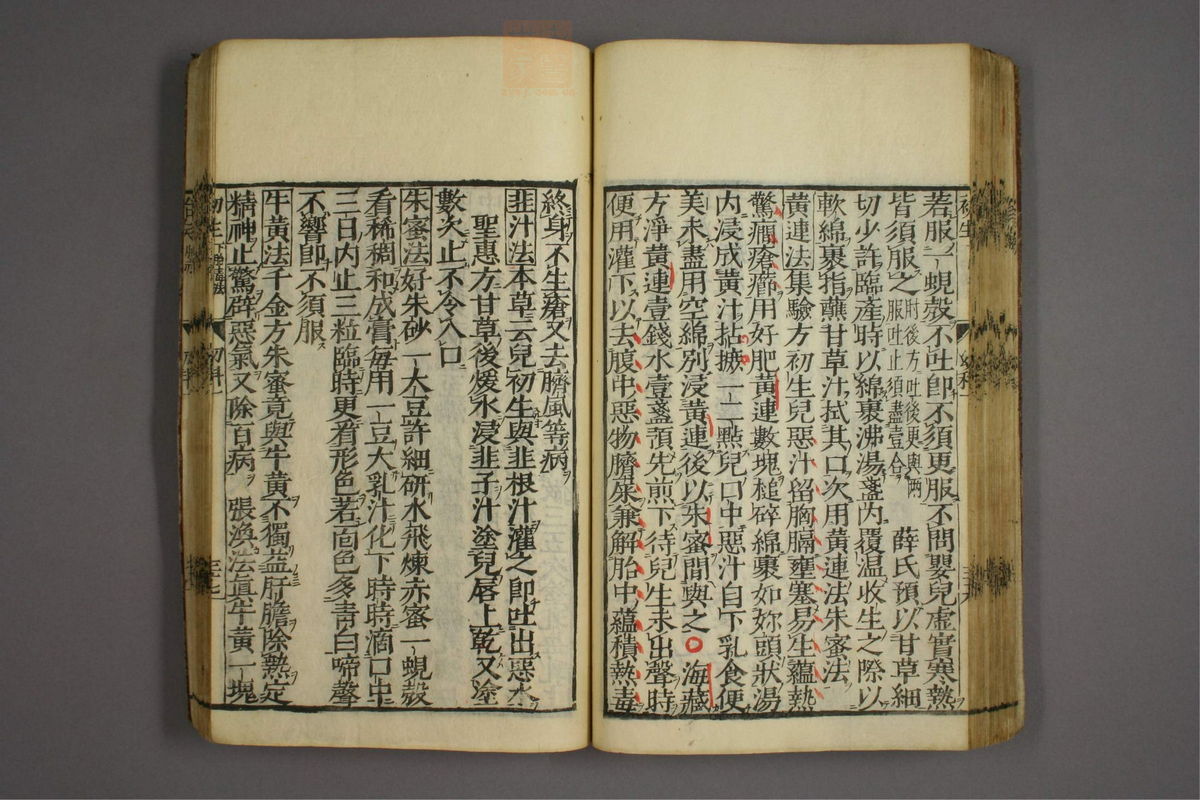 若服一蜆殼不吐即不須更服不問嬰兒虛實寒熱
皆須服之肘後方吐後更與兩服吐止須盡壹合 薛氏預以甘草細
切少許臨產時以綿裹沸湯盞內覆温收生之際以
軟綿裹指蘸甘草汁拭其口次用黃連法朱蜜法
黃連法集驗方初生兒惡汁留胸膈壅塞易生蘊熱
驚癎瘡癤用好肥黃連數塊槌碎綿裹如妳頭狀湯
內浸成黃汁拈摝一二點兒口中惡汁自下乳食便
美未盡用空綿別浸黃連後以朱蜜間與之○海藏
方淨黃連壹錢水壹盞預先煎下待兒生未出聲時
便用灌下以去腹中惡物臍屎兼解胎中蘊積熱毒
終身不生瘡又去臍風等病
韭汁法本草云兒初生與韭根汁灌之即吐出惡水
聖惠方甘草後煖水浸韭子汁塗兒唇上乾又塗
數次止不令入口
朱蜜法好朱砂一大豆許細研水飛煉赤蜜一蜆殼
看稀稠和成膏每用一豆大乳汁化下時時滴口中
三日內止三粒臨時更看形色若面色多青白啼聲
不響即不須服
牛黃法千金方朱蜜竟與牛黃不獨益肝膽除熱定
精神止驚辟惡氣又除百病 張渙法真牛黃一塊